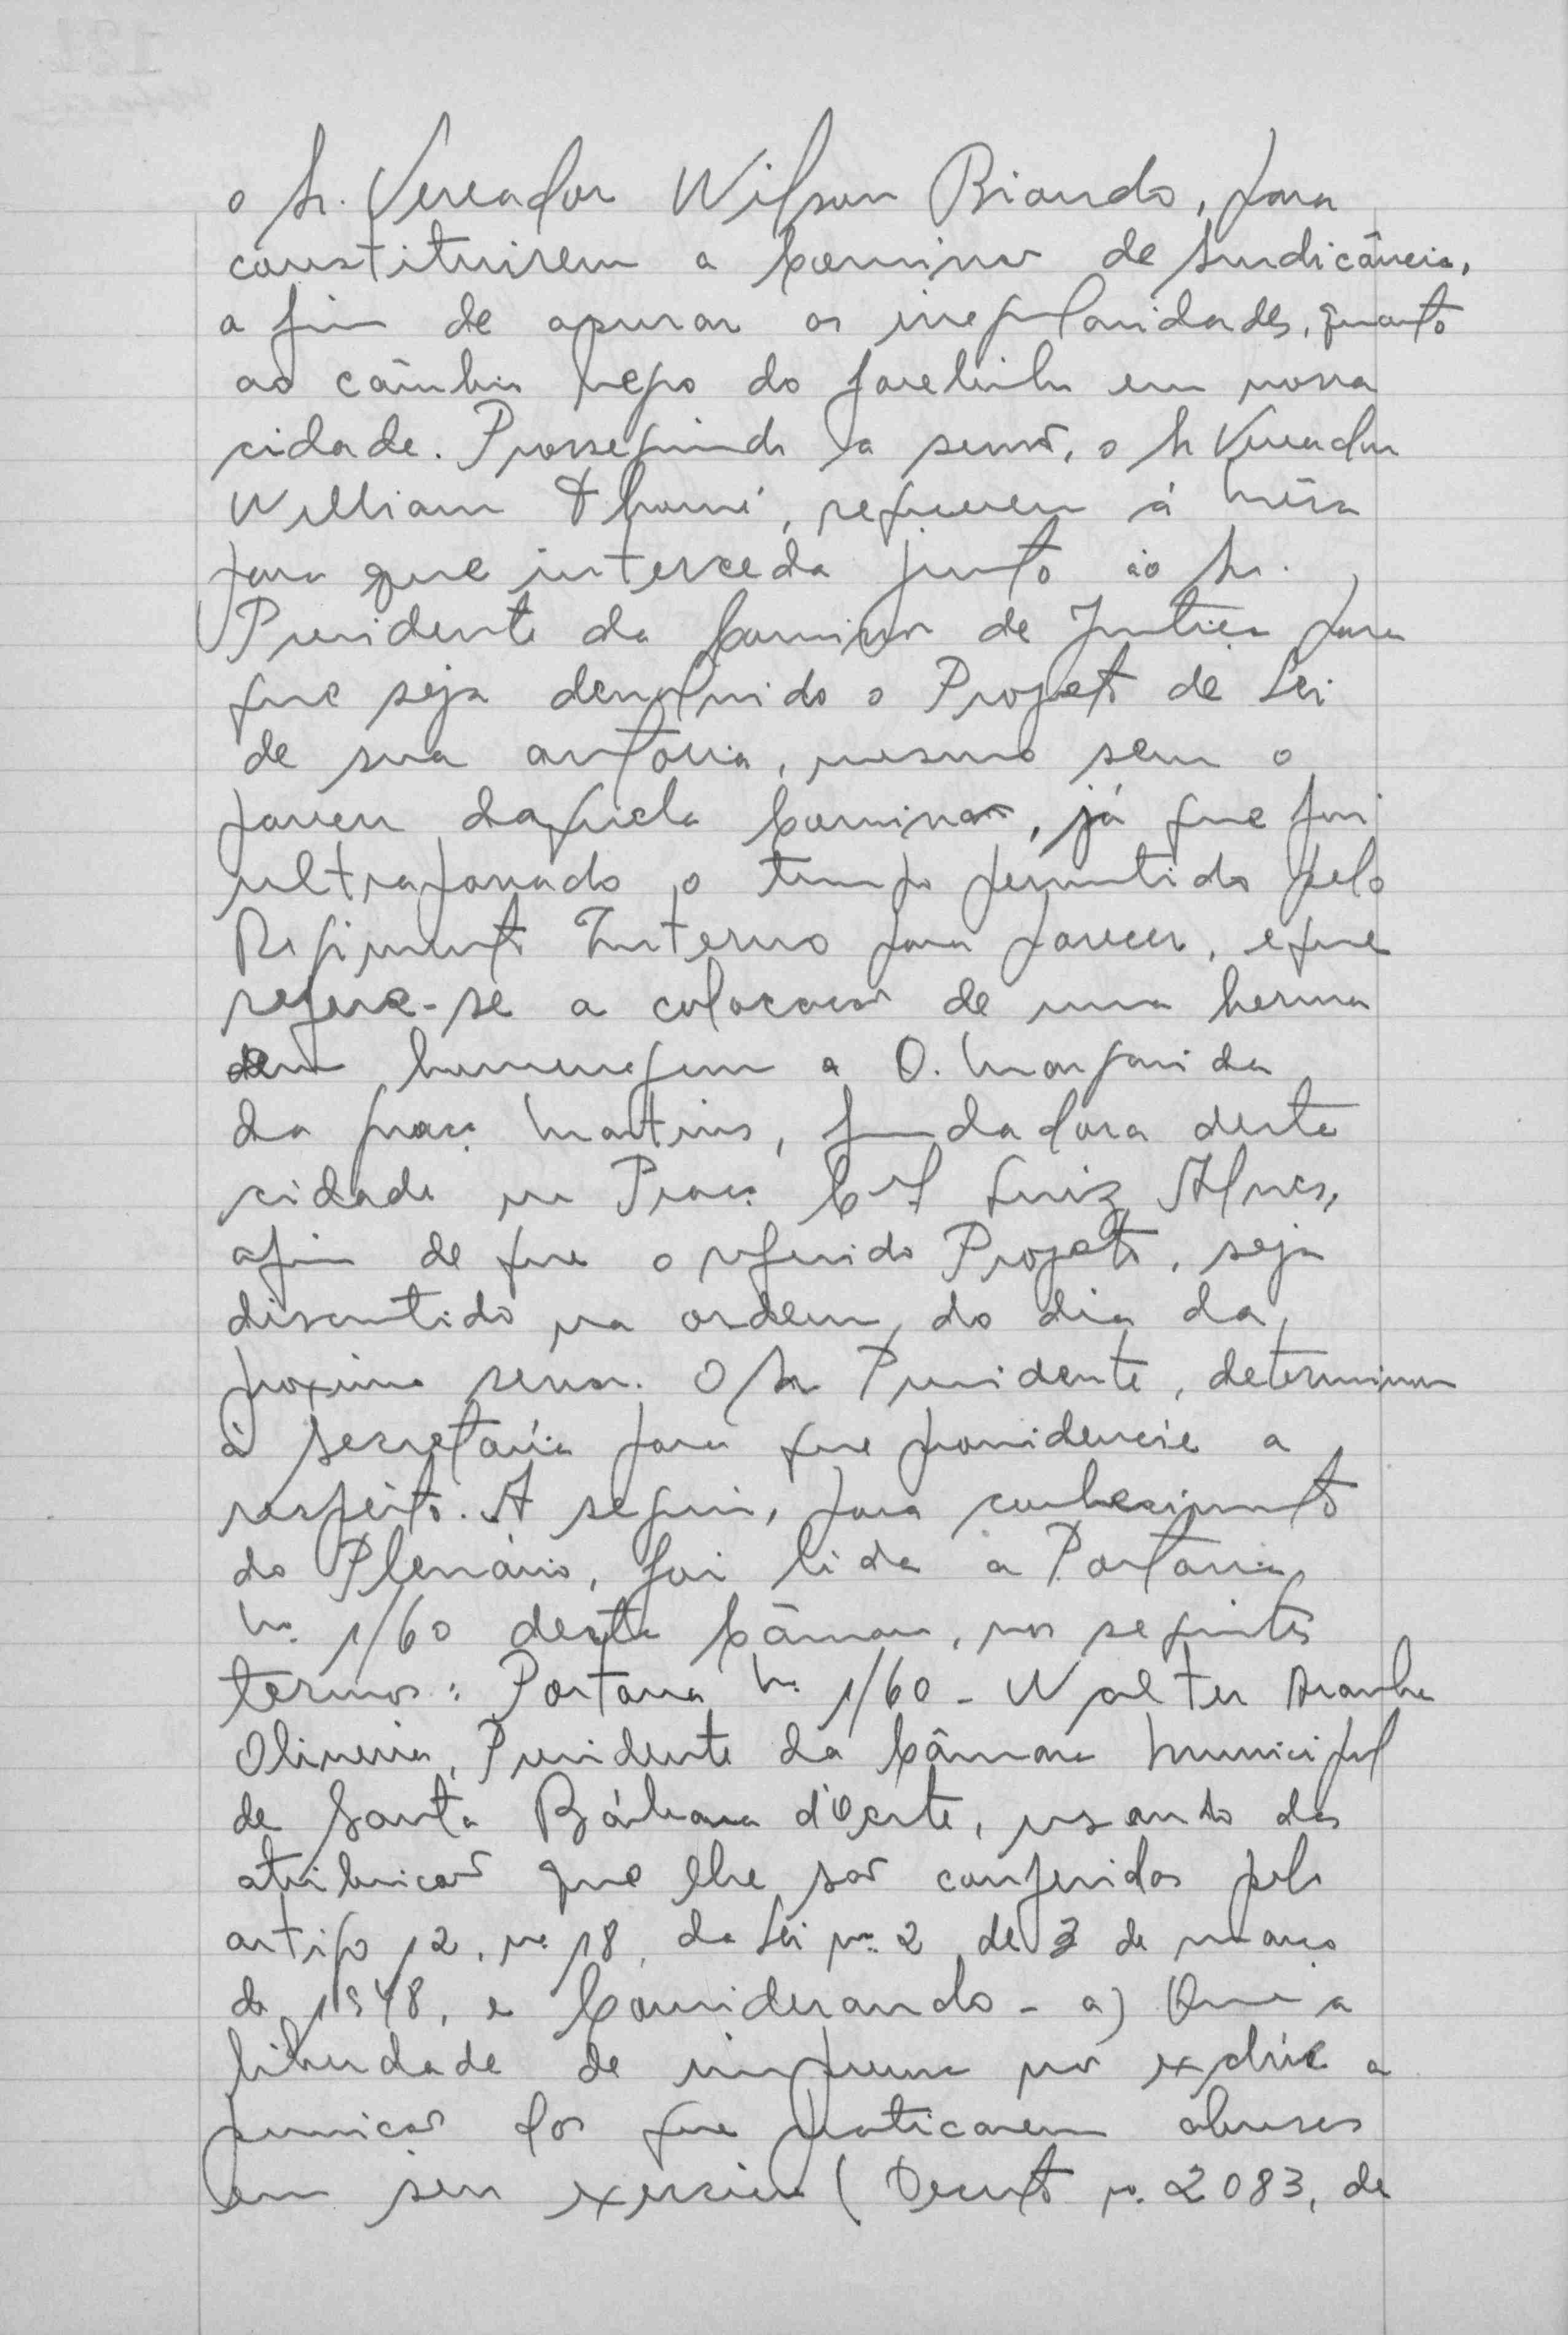 o Sr. Vereador Wilson Biondo, para
constituirem a Comissão de Sindicância,
a fim de apurar as irregularidades, quanto
ao câmbio negro do farelinho em nossa
cidade. Prosseguindo a sessão, o Sr Vereador
William Thomé, requereu á Mêsa
para que interceda junto ao Sr.
Presidente da Comissão de Justiça para
que seja devolvido o Projeto de Lei
de sua autoria, mesmo sem o
parecer daquela Comissão, já que foi
ultrapassado o tempo permitido pelo
Regimento Interno para parecer, e que
refere-se a colocação de uma herma
em homenagem a D. Margarida
da Graça Martins, fundadora desta
cidade na Praça Cel Luiz Alves,
afim de que o referido Projeto, seja
discutido na ordem do dia da
proxima sessão. O Sr Presidente, determinou
á Secretaria para que providencie a
respeito. A seguir, para conhecimento
do Plenário, foi lida a Portaria
No. 1/60 desta Câmara, nos seguintes
termos: Portaria No. 1/60 - Walter Aranha
Oliveira, Presidente da Câmara Municipal
de Santa Bárbara d'Oeste, usando das
atribuição que lhe são conferidas pelo
artigo 12, no. 18, da Lei no. 2 de 3 de março
de 1948, e Considerando - a) Que a
liberdade de imprensa não exclúe a
punição dos que praticarem abusos
em seu exercicio (Decreto no. 2083, de